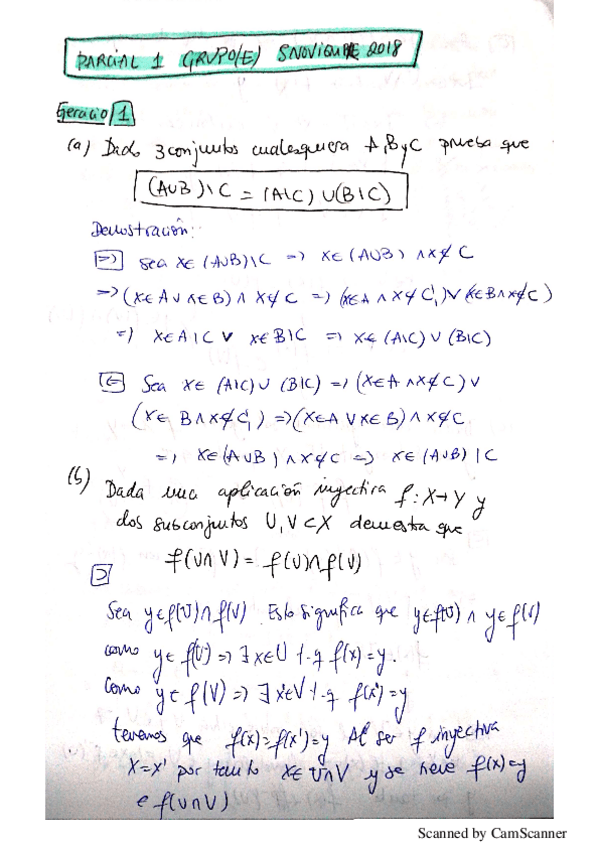 PARCIAL 1 GRUPO(E) 8 NOVIEMBRE 2018
Ejercicio 1
(a) Dado 3 conjuntos cualesquiera A, B y C prueba que
(A∪B)\C = (A\C) ∪ (B\C)
Demostración:
=>) Sea x∈(A∪B)\C => x∈(A∪B) ∧ x∉C
=> (x∈A ∨ x∈B) ∧ x∉C => (x∈A ∧ x∉C) ∨ (x∈B ∧ x∉C)
=> x∈A\C ∨ x∈B\C => x∈(A\C) ∪ (B\C)
<= Sea x∈(A\C) ∪ (B\C) => (x∈A ∧ x∉C) ∨
(x∈B ∧ x∉C) => (x∈A ∨ x∈B) ∧ x∉C
=> x∈(A∪B) ∧ x∉C => x∈(A∪B)\C
(b) Dada una aplicación inyectiva f: X→Y y
dos subconjuntos U, V ⊂ X demuestra que
f(U∩V) = f(U)∩f(V)
⊃
Sea y∈f(U)∩f(V). Esto significa que y∈f(U) ∧ y∈f(V)
como y∈f(U) => ∃x∈U t.q f(x)=y.
Como y∈f(V) => ∃x'∈V t.q f(x')=y
tenemos que f(x)=f(x')=y Al ser f inyectiva
x=x' por tanto x∈U∩V y se tiene f(x)=y
∈f(U∩V)
Scanned by CamScanner